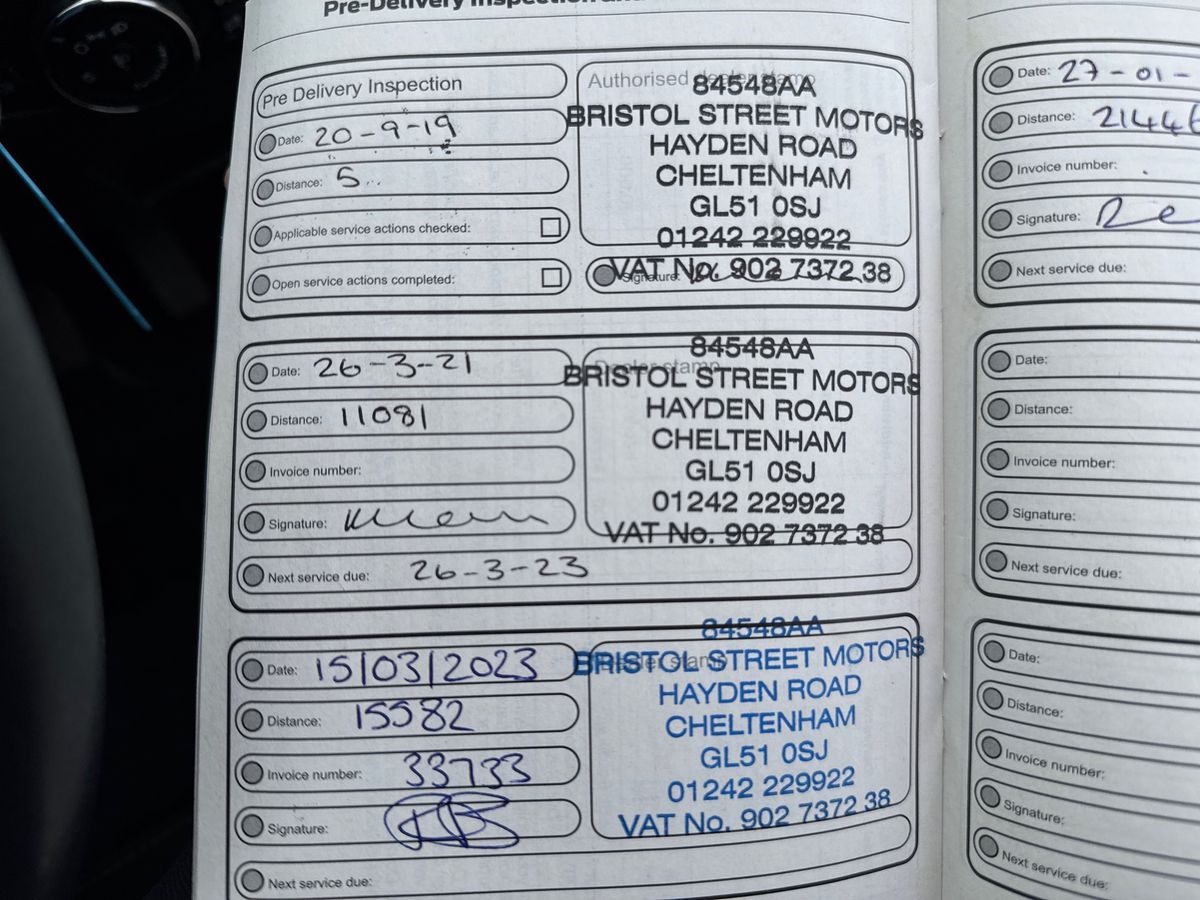 Pre-Delivery Inspection
Pre Delivery Inspection
Date: 20-9-19
Distance: 5
Applicable service actions checked:
Open service actions completed:
Authorised dealer stamp
84548AA
BRISTOL STREET MOTORS
HAYDEN ROAD
CHELTENHAM
GL51 0SJ
01242 229922
VAT No. 902 7372 38
Signature:
Date: 26-3-21
Distance: 11081
Invoice number:
Signature:
Next service due: 26-3-23
Dealer stamp
84548AA
BRISTOL STREET MOTORS
HAYDEN ROAD
CHELTENHAM
GL51 0SJ
01242 229922
VAT No. 902 7372 38
Date: 15/03/2023
Distance: 15582
Invoice number: 33733
Signature:
Next service due:
Dealer stamp
84548AA
BRISTOL STREET MOTORS
HAYDEN ROAD
CHELTENHAM
GL51 0SJ
01242 229922
VAT No. 902 7372 38
Date: 27-01-
Distance: 2144
Invoice number:
Signature:
Next service due:
Date:
Distance:
Invoice number:
Signature:
Next service due:
Date:
Distance:
Invoice number:
Signature:
Next service due: